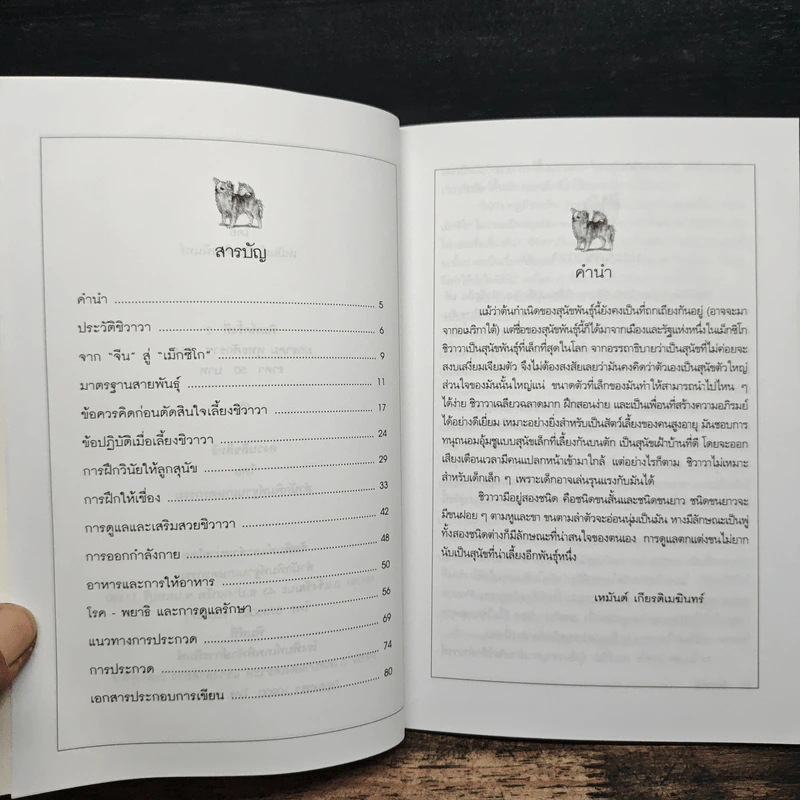 สารบัญ
คำนำ 5
ประวัติชิวาวา 6
จาก "จีน" สู่ "เม็กซิโก" 9
มาตรฐานสายพันธุ์ 11
ข้อควรคิดก่อนตัดสินใจเลี้ยงชิวาวา 17
ข้อปฏิบัติเมื่อเลี้ยงชิวาวา 24
การฝึกวินัยให้ลูกสุนัข 29
การฝึกให้เชื่อง 33
การดูแลและเสริมสวยชิวาวา 42
การออกกำลังกาย 48
อาหารและการให้อาหาร 50
โรค - พยาธิ และการดูแลรักษา 56
แนวทางการประกวด 69
การประกวด 74
เอกสารประกอบการเขียน 80
คำนำ
แม้ว่าต้นกำเนิดของสุนัขพันธุ์นี้ยังคงเป็นที่ถกเถียงกันอยู่ (อาจจะมา
จากอเมริกาใต้) แต่ชื่อของสุนัขพันธุ์นี้ก็ได้มาจากเมืองและรัฐแห่งหนึ่งในเม็กซิโก
ชิวาวาเป็นสุนัขพันธุ์ที่เล็กที่สุดในโลก จากอรรถาธิบายว่าเป็นสุนัขที่ไม่ค่อยจะ
สงบเสงี่ยมเจียมตัว จึงไม่ต้องสงสัยเลยว่ามันคงคิดว่าตัวเองเป็นสุนัขตัวใหญ่
ส่วนใจของมันนั้นใหญ่แน่ ขนาดตัวที่เล็กของมันทำให้สามารถนำไปไหน ๆ
ได้ง่าย ชิวาวาเฉลียวฉลาดมาก ฝึกสอนง่าย และเป็นเพื่อนที่สร้างความอภิรมย์
ได้อย่างดีเยี่ยม เหมาะอย่างยิ่งสำหรับเป็นสัตว์เลี้ยงของคนสูงอายุ มันชอบการ
ทนุถนอมอุ้มชูแบบสุนัขเล็กที่เลี้ยงบนตัก เป็นสุนัขเฝ้าบ้านที่ดี โดยจะออก
เสียงเตือนเวลามีคนแปลกหน้าเข้ามาใกล้ แต่อย่างไรก็ตาม ชิวาวาไม่เหมาะ
สำหรับเด็กเล็ก ๆ เพราะเด็กอาจเล่นรุนแรงกับมันได้
ชิวาวามีอยู่สองชนิด คือชนิดขนสั้นและชนิดขนยาว ชนิดขนยาวจะ
มีขนฝอย ๆ ตามหูและขา ขนตามลำตัวจะอ่อนนุ่มเป็นมัน หางมีลักษณะเป็นพู่
ทั้งสองชนิดต่างก็มีลักษณะที่น่าสนใจของตนเอง การดูแลตกแต่งขนไม่ยาก
นับเป็นสุนัขที่น่าเลี้ยงอีกพันธุ์หนึ่ง
เหมันต์ เกียรติเมฆินทร์